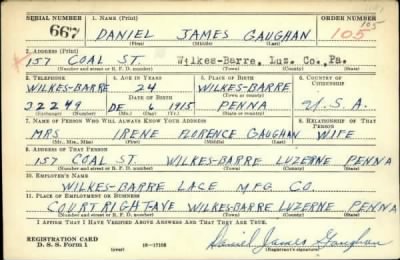 SERIAL NUMBER 1. NAME (Print) ORDER NUMBER
667 DANIEL JAMES GAUGHAN 105
(First) (Middle) (Last) 105
2. ADDRESS (Print)
157 COAL ST. Wilkes-Barre, Luz. Co., Pa.
(Number and street or R. F. D. number) (Town) (County) (State)
3. TELEPHONE 4. AGE IN YEARS 5. PLACE OF BIRTH 6. COUNTRY OF CITIZENSHIP
WILKES-BARRE 24 WILKES-BARRE
DATE OF BIRTH (Town or county)
22249 DE 6 1915 PENNA U.S.A
(Exchange) (Number) (Mo.) (Day) (Yr.) (State or country)
7. NAME OF PERSON WHO WILL ALWAYS KNOW YOUR ADDRESS 8. RELATIONSHIP OF THAT PERSON
MRS IRENE FLORENCE GAUGHAN WIFE
(Mr., Mrs., Miss) (First) (Middle) (Last)
9. ADDRESS OF THAT PERSON
157 COAL ST. WILKES-BARRE LUZERNE PENNA
(Number and street or R. F. D. number) (Town) (County) (State)
10. EMPLOYER'S NAME
WILKES-BARRE LACE MFG. CO.
11. PLACE OF EMPLOYMENT OR BUSINESS
COURTRIGHT AVE WILKES-BARRE LUZERNE PENNA
(Number and street or R. F. D. number) (Town) (County) (State)
I AFFIRM THAT I HAVE VERIFIED ABOVE ANSWERS AND THAT THEY ARE TRUE.
REGISTRATION CARD
D. S. S. Form 1 (over) 16-17105 Daniel James Gaughan
(Registrant's signature)